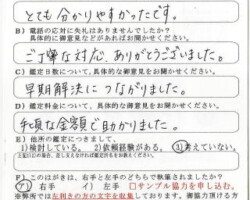 とても分かりやすかったです。
B）電話の応対に失礼はありませんでしたか？
具体的に御意見などがあればお聞かせください。
ご丁寧な対応、ありがとうございました。
C）鑑定日数について、具体的な御意見をお聞かせください。
早期解決につながりました。
D）鑑定料金について、具体的な御意見をお聞かせください。
手頃な金額で助かりました。
E）他所の鑑定につきまして
1)検討している。 2)依頼経験がある。 3)考えていない。
F）このはがきは、右手と左手のどちらで執筆されましたか？
ア）右手 イ）左手 □サンプル協力を申し込む。
※弊所では左利きの方の文字を収集しております。御協力頂ける方